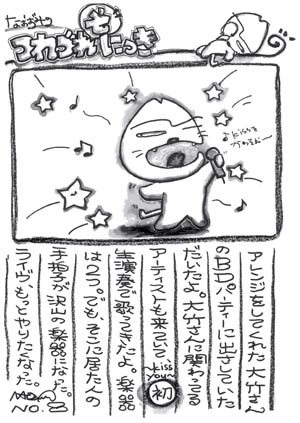 なおみの
つれづれ
にっき
アレンジをしてくれた大竹さん
のBDパーティーに出させていた
だいたよ。大竹さんに関わってる
アーティストも来ていて、
Kiss you〜
初
生演奏で歌ってきたよ。楽器
は2つ。でも、そこに居た人の
手拍子が沢山の楽器になった。
ライヴ、もっとやりたくなった。
NO. 8